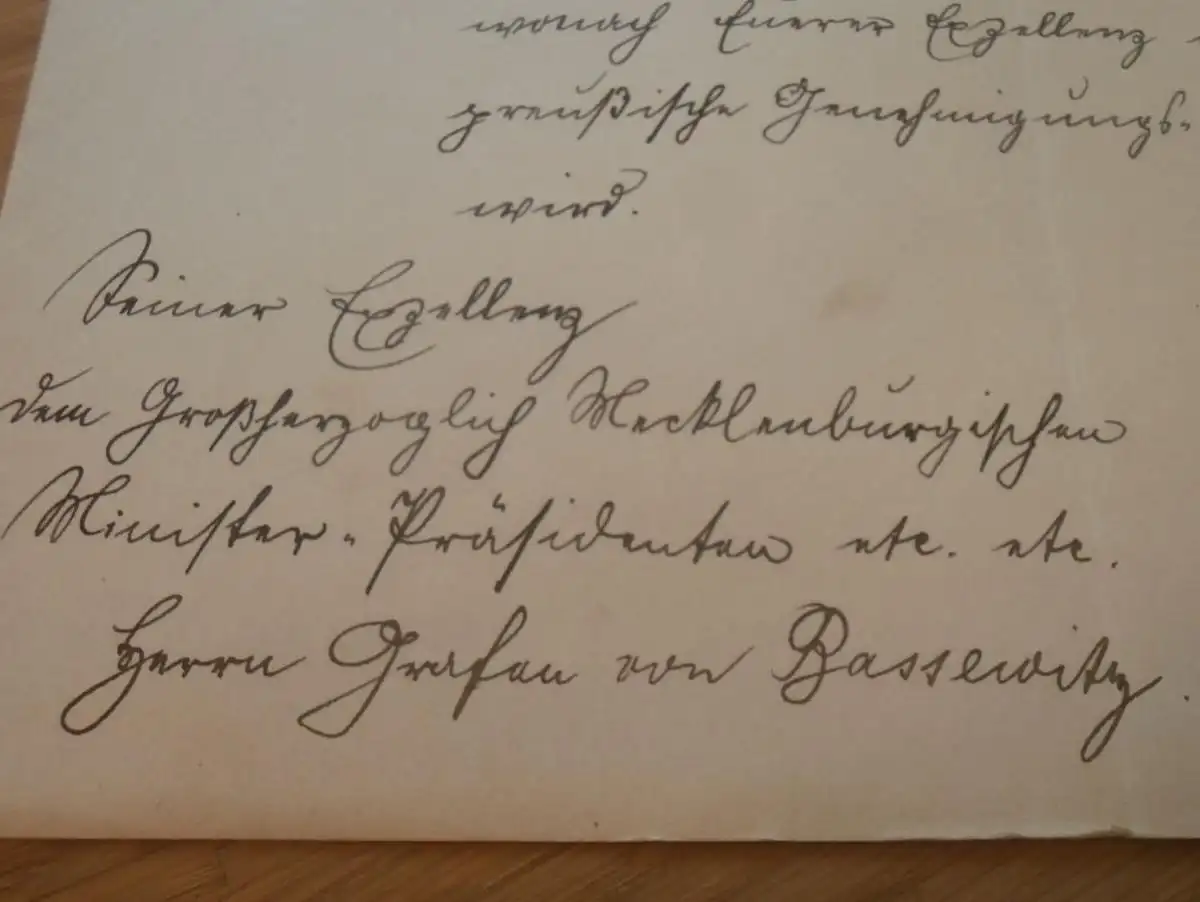 wonach Euerer Exzellenz
preußische Genehmigungs-
wird.
Seiner Exzellenz
dem Großherzoglich Mecklenburgischen
Minister-Präsidenten etc. etc.
Herrn Grafen von Bassewitz.